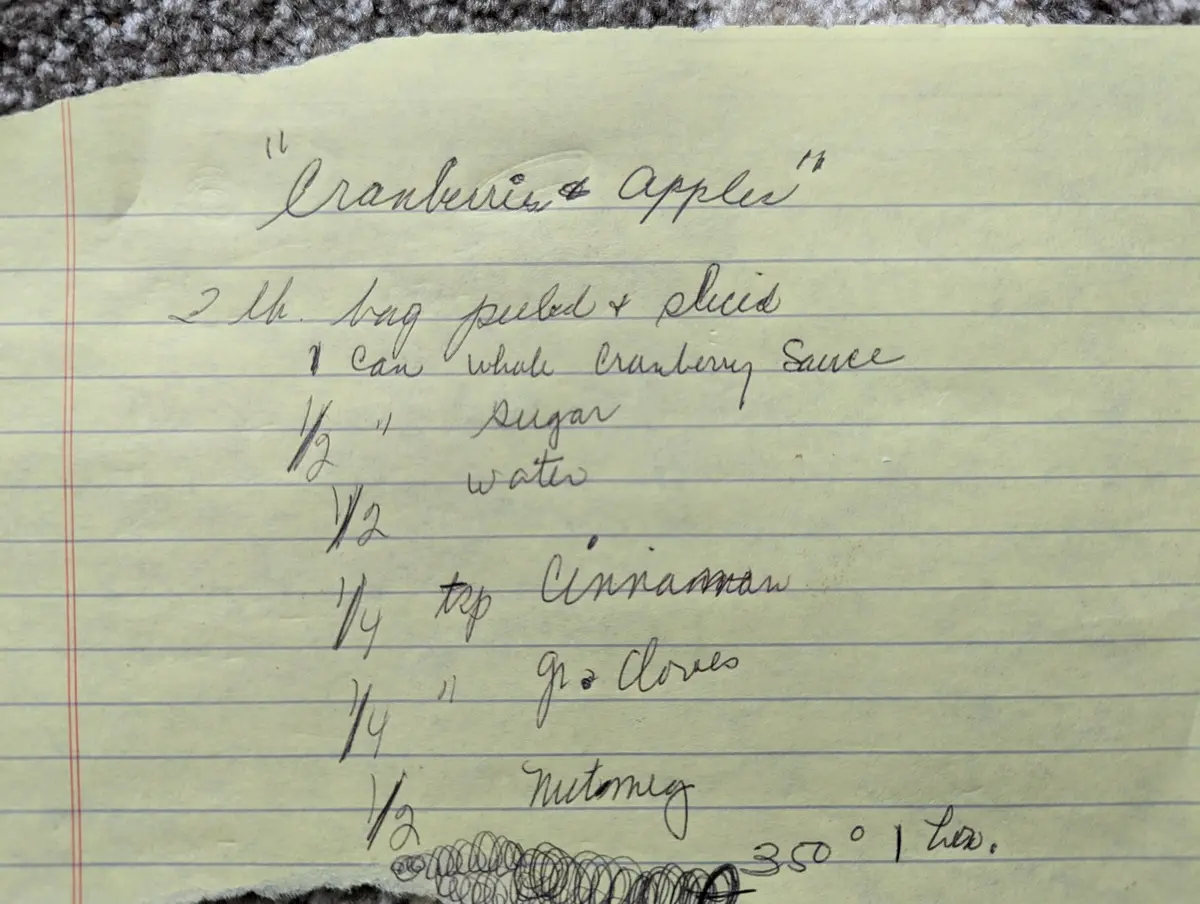 "Cranberries & Apples"
2 lb. bag peeled & sliced
1 can whole Cranberry Sauce
1/2 " sugar
1/2 water
1/4 tsp Cinnamon
1/4 " gr. Cloves
1/2 Nutmeg
350° 1 hr.